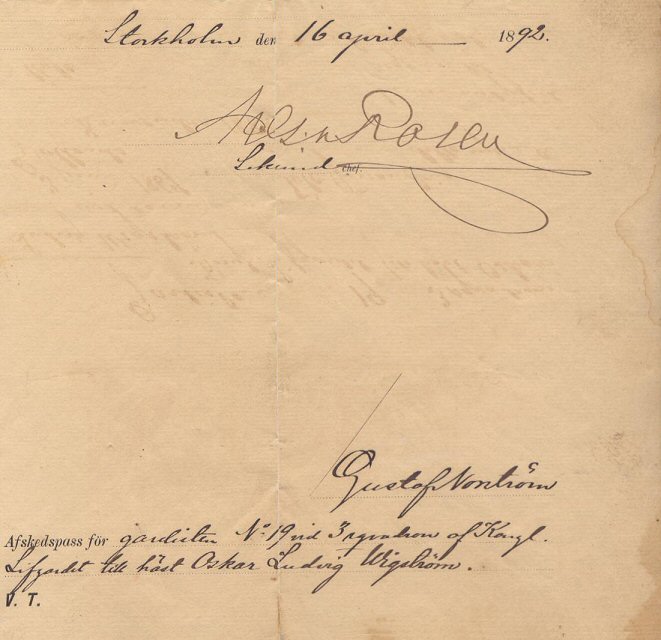 Stockholm den 16 april 1892.
Rosen
Sekund chef.
Gustaf Norström
Afskedspass för gardisten No 19 vid 3 sqvadron af Kongl.
Lifgardet till häst Oskar Ludvig Wigström.
V. T.